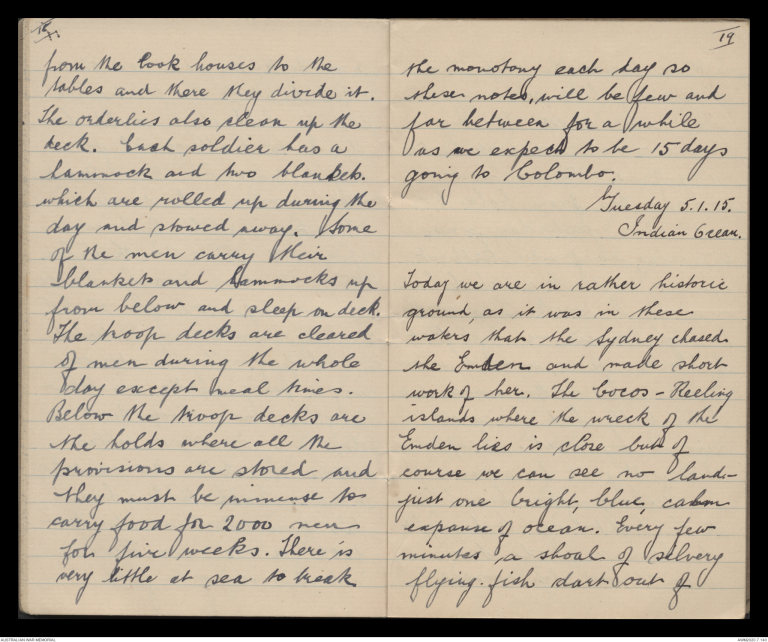 18
from the Cook houses to the
tables and there they divide it.
The orderlies also clean up the
deck. Each soldier has a
hammock and two blankets.
which are rolled up during the
day and stowed away. Some
of the men carry their
blankets and hammocks up
from below and sleep on deck.
The troop decks are cleared
of men during the whole
day except meal times.
Below the troop decks are
the holds where all the
provisions are stored and
they must be immense to
carry food for 2000 men
for five weeks. There is
very little at sea to break
19
the monotony each day so
these notes, will be few and
far between for a while
as we expect to be 15 days
going to Colombo.
Tuesday 5.1.15.
Indian Ocean.
Today we are in rather historic
ground, as it was in these
waters that the Sydney chased
the Emden and made short
work of her. The Cocos - Keeling
islands where the wreck of the
Emden lies is close but of
course we can see no land -
just one bright, blue, calm
expanse of ocean. Every few
minutes a shoal of silvery
flying-fish dart out of
AUSTRALIAN WAR MEMORIAL